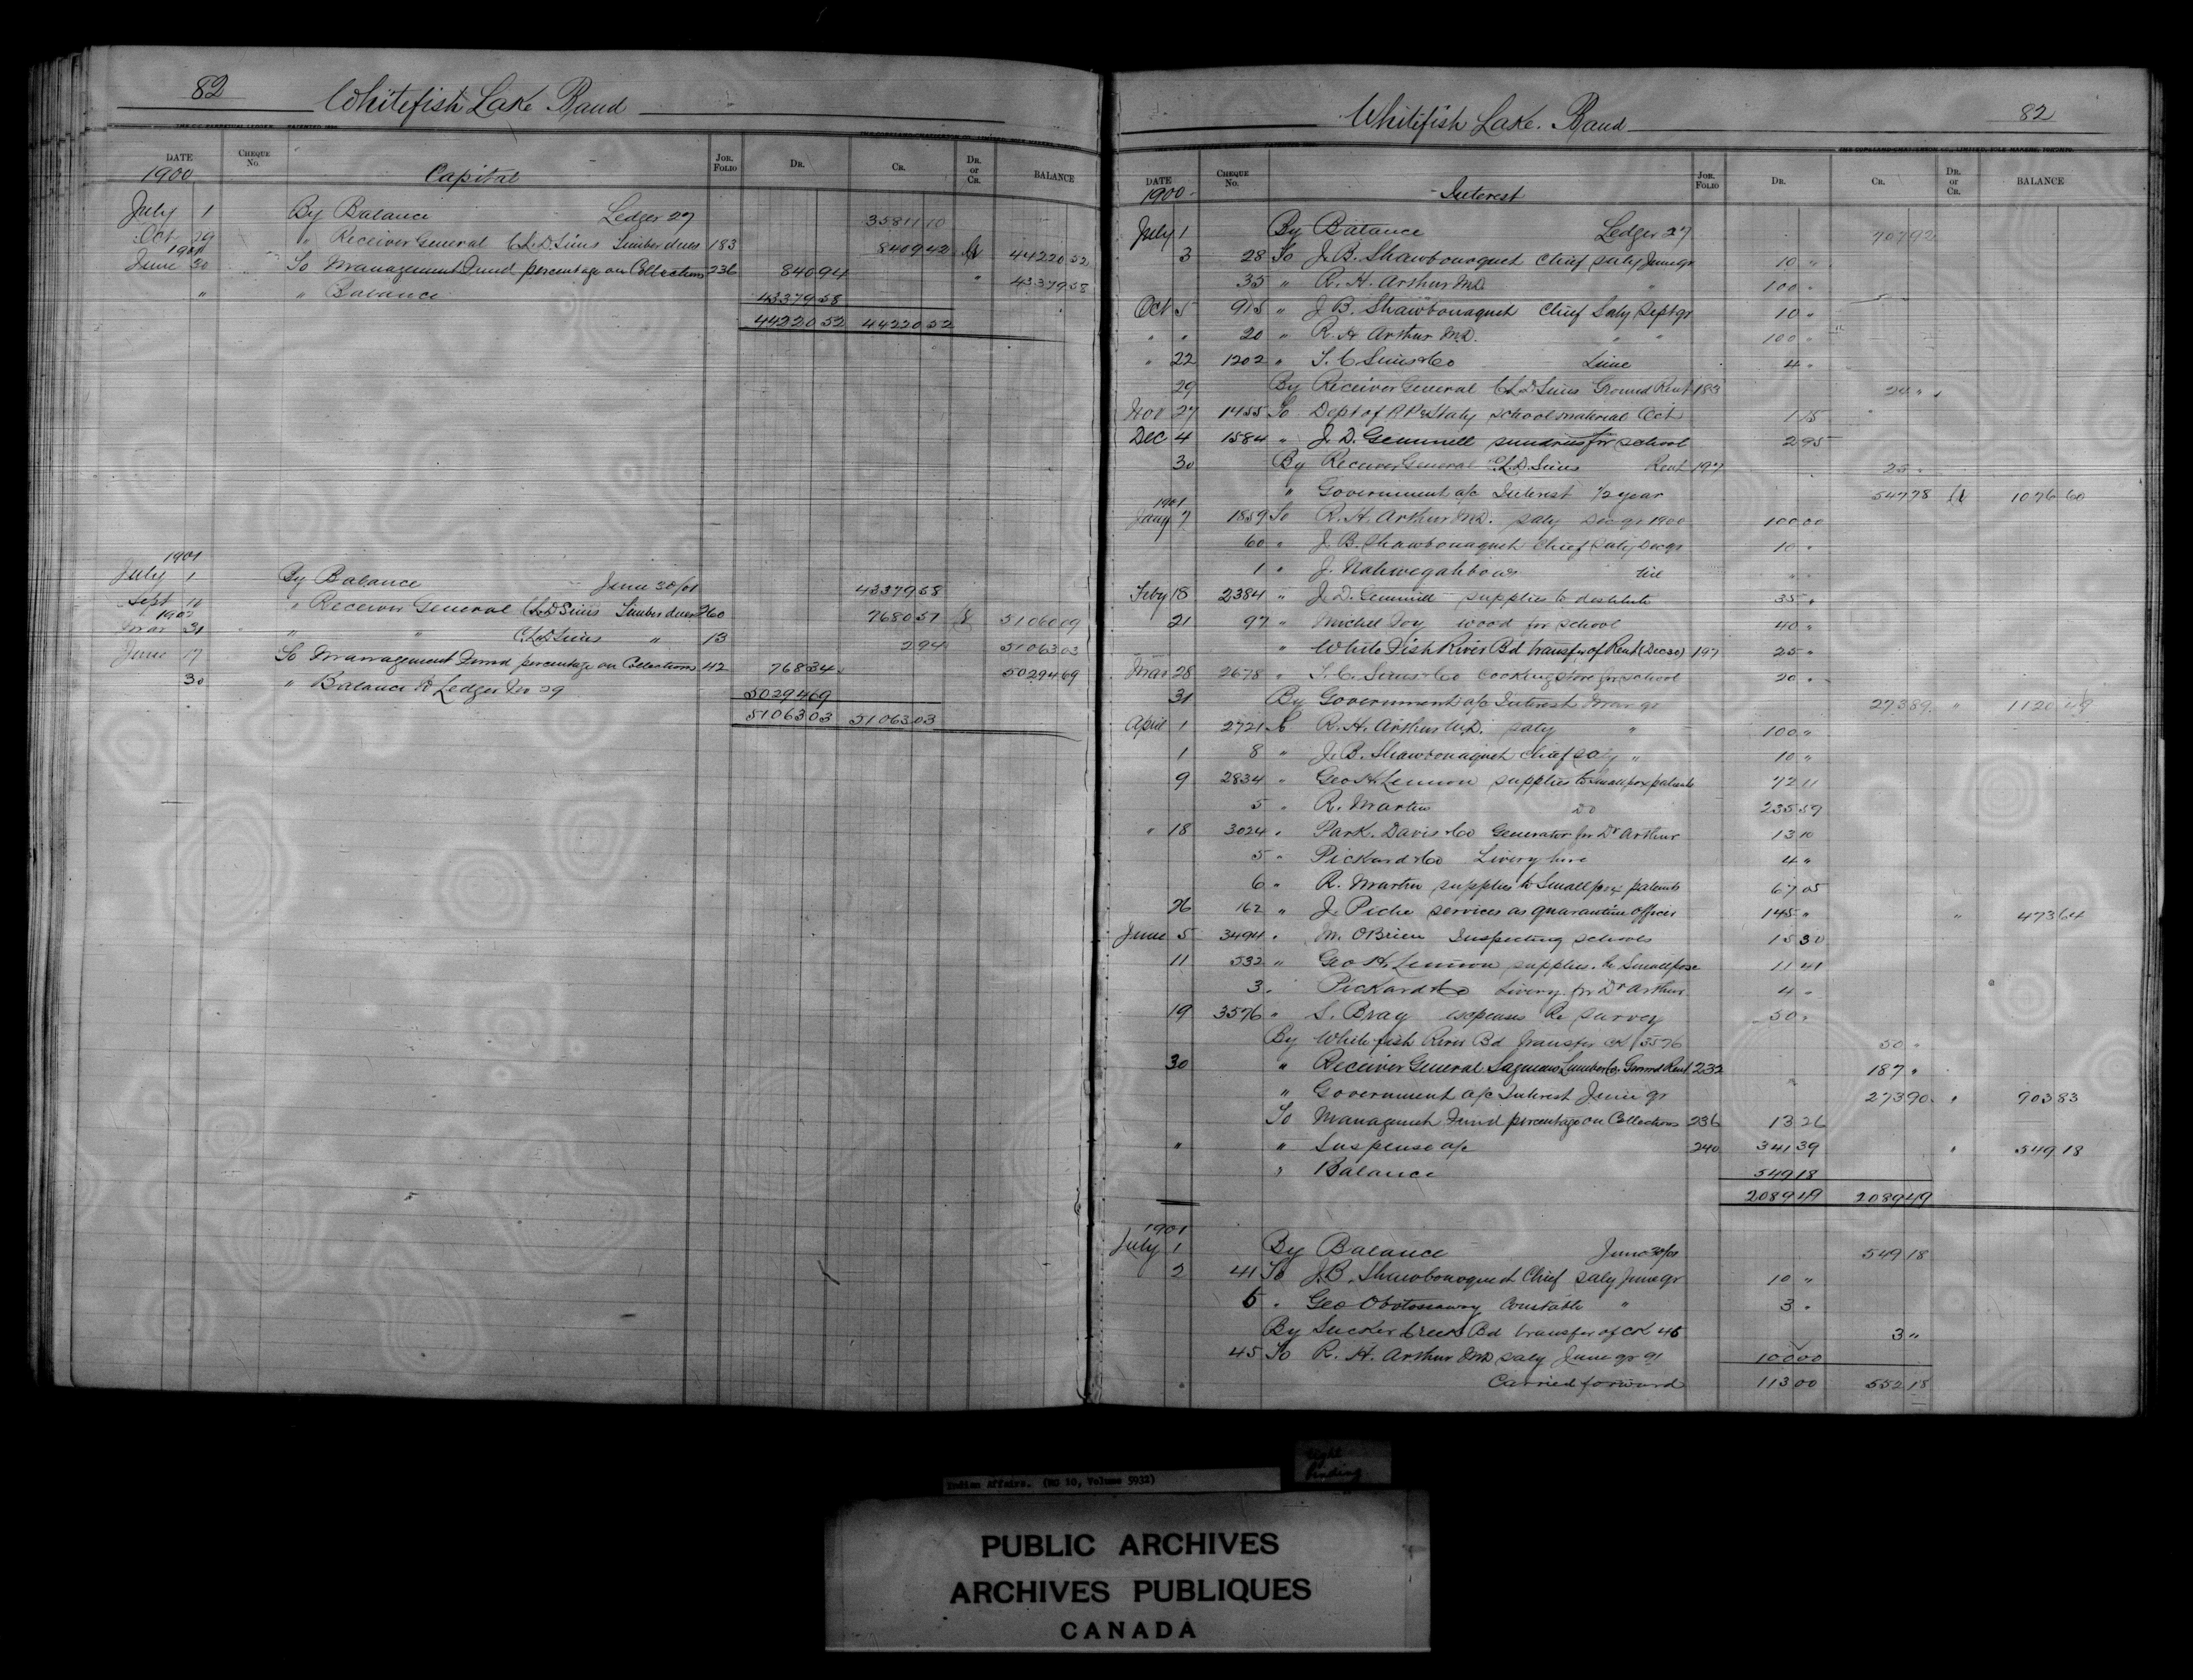 82 Whitefish Lake Band
THE COPELAND-CHATTERSON CO., LIMITED
DATE CHEQUE No. JOR. FOLIO DR. CR. DR. or CR. BALANCE
1900 Capital
July 1 By Balance Ledger 27 35811 10
Oct 29 " Receiver General C.L.D. Sims Timber dues 183 8409 42 Cr 44220 52
1901
June 30 To Management Fund percentage on Collections 236 840 94 " 43379 58
" " Balance 43379 58
44220 52 44220 52
1901
July 1 By Balance June 30/01 43379 58
Sept 10 " Receiver General C.L.D. Sims Timber dues 260 7680 51 51060 09
1902
Mar 31 " " C.L.D. Sims " 13 2 94 51063 03
June 17 To Management Fund percentage on Collections 42 768 34 50294 69
30 " Balance to Ledger No 29 50294 69
51063 03 51063 03
Whitefish Lake Band 82
DATE CHEQUE No. JOR. FOLIO DR. CR. DR. or CR. BALANCE
1900 Interest
July 1 By Balance Ledger 27 707 92
3 28 To J. B. Shawbonoquet Chief saly June qr 10 "
35 " R. H. Arthur MD " 100 "
Oct 5 915 " J. B. Shawbonaquet Chief Saly Sept qr 10 "
" " 20 " R. H. Arthur M.D. " " 100 "
" 22 1202 " T. C. Sims & Co Lime 4 "
29 By Receiver General C.L.D. Sims Ground Rent 183 24 "
Nov 27 1455 To Dept of P & Staty school material Oct 1 15
Dec 4 1584 " J. D. Gemmell sundries for school 2 95
30 By Receiver General C.L.D. Sims Rent 197 25 "
" Government a/c Interest 1/2 year 547 78 Cr 1076 60
1901
Jany 7 1859 To R. H. Arthur MD. saly Dec qr 1900 100 00
60 " J. B. Shawbonaquet Chief Saly Dec qr 10 "
1 " J. Nahwegahbow
Feby 18 2384 " J. D. Gemmill supplies to destitute 35 "
21 97 " Michel wood for school 40 "
" White Fish River Bd transfer of Rent (Dec 30) 197 25 "
Mar 28 2678 " T. C. Sims & Co Cooking stove for school 20 "
31 By Government a/c Interest Mar qr 273 89 " 1120
April 1 2721 To R. H. Arthur M.D. saly " 100 "
1 8 " J. B. Shawbonaquet Chief saly " 10 "
9 2834 " Geo H Lennon supplies to Smallpox patients 72 11
5 " R. Martin Do 235 59
" 18 3024 " Park. Davis & Co Generator for Dr Arthur 13 10
5 " Pickard & Co Livery hire 4 "
6 " R. Martin supplies to Smallpox patients 67 05
26 162 " J. Piche services as quarantine officer 145 " " 473 64
June 5 3494 " M. OBrien Inspecting schools 15 30
11 532 " Geo H Lennon supplies to Smallpox 11 41
3 " Pickard & Co Livery for Dr Arthur 4 "
19 3576 " S. Bray expenses Re survey 50 "
By White fish River Bd transfer CK 3576 50 "
30 " Receiver General Saginaw Lumber Co. Ground Rent 232 187 "
" Government a/c Interest June qr 273 90 " 903 83
To Management Fund percentage on Collections 236 13 26
" " Suspense a/c 240 341 39 " 549 18
" Balance 549 18
2089 49 2089 49
1901
July 1 By Balance June 30/01 549 18
2 41 To J.B. Shawbonoquet Chief saly June qr 10 "
5 " Geo Obotossaway Constable " 3 "
By Sucker Creek Bd transfer of CK 45 3 "
45 To R. H. Arthur MD saly June qr 91 100 00
Carried forward 113 00 552 18
Indian Affairs. (RG 10, Volume 5932)
tight binding
PUBLIC ARCHIVES
ARCHIVES PUBLIQUES
CANADA